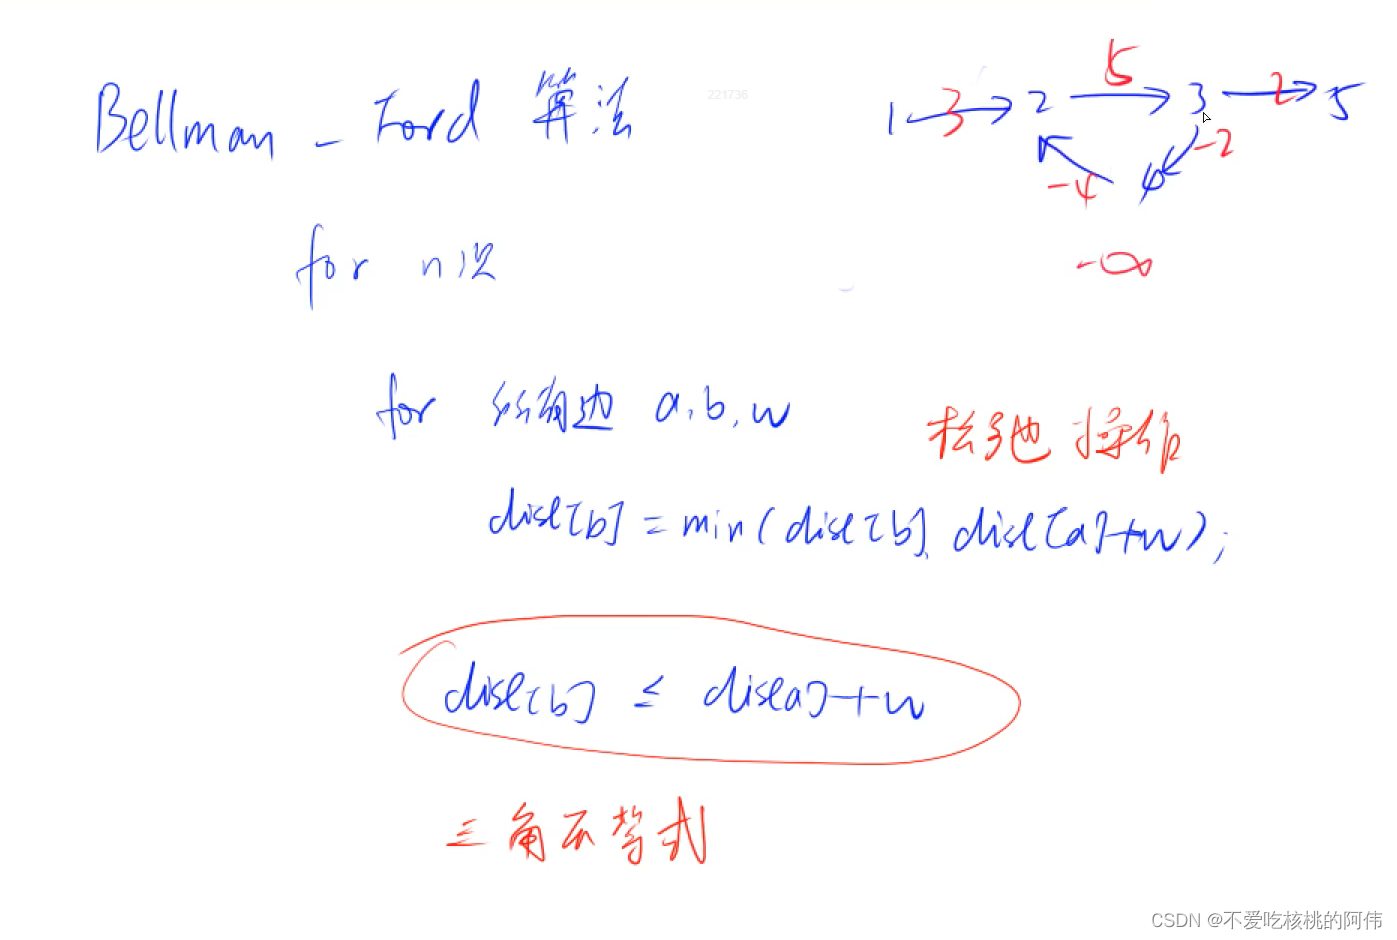 Bellman - Ford 算法
221736
1 3 2 5 3 2 5
-4 4 -2
-∞
for n次
for 所有边 a,b,w
松弛操作
dist[b] = min(dist[b], dist[a]+w);
dist[b] ≤ dist[a]+w
三角不等式
CSDN @不爱吃核桃的阿伟